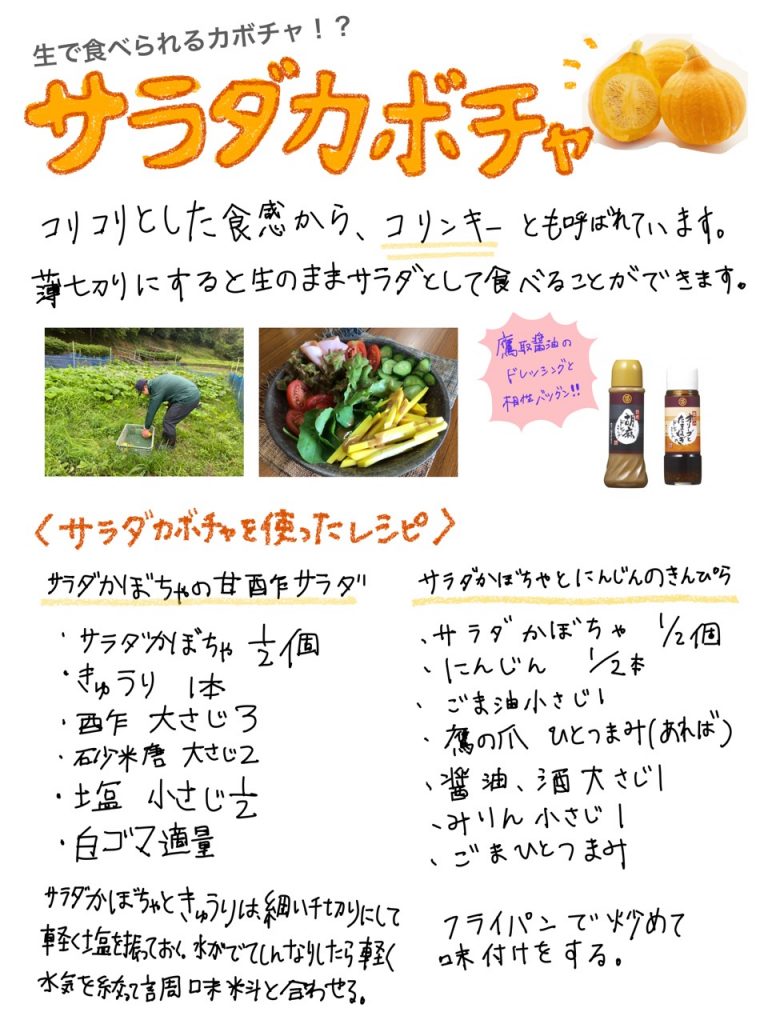 生で食べられるカボチャ！？
サラダカボチャ
コリコリとした食感から、コリンキーとも呼ばれています。
薄切りにすると生のままサラダとして食べることができます。
鷹取醤油の
ドレッシングと
相性バツグン!!
胡麻
ドレッシング
オリーブと
たまねぎ
〈サラダカボチャを使ったレシピ〉
サラダかぼちゃの甘酢サラダ
・サラダかぼちゃ 1/2個
・きゅうり 1本
・酢 大さじ3
・砂糖 大さじ2
・塩 小さじ1/2
・白ゴマ適量
サラダかぼちゃときゅうりは、細い千切りにして
軽く塩を振っておく。水がでてしんなりしたら軽く
水気を絞って調味料と合わせる。
サラダかぼちゃとにんじんのきんぴら
、サラダかぼちゃ 1/2個
、にんじん 1/2本
、ごま油小さじ1
、鷹の爪 ひとつまみ(あれば)
、醤油、酒大さじ1
、みりん小さじ1
、ごまひとつまみ
フライパンで炒めて
味付けをする。